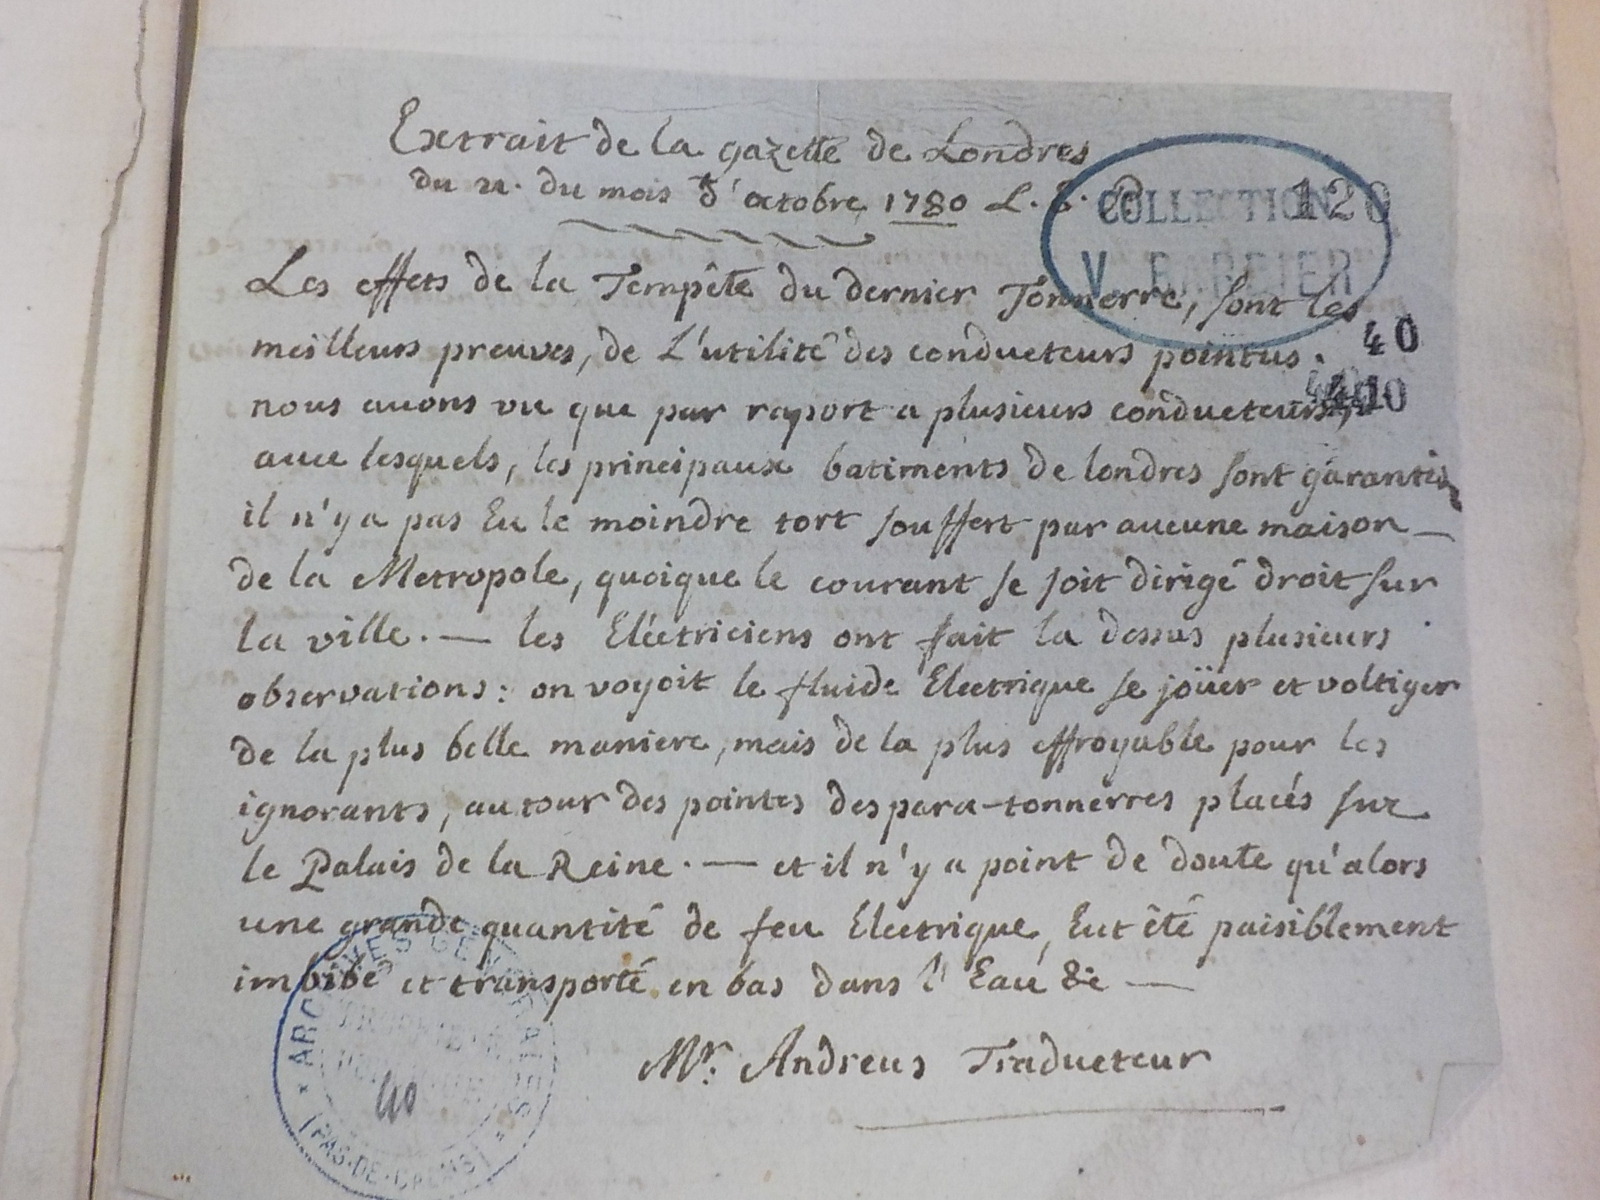 Extrait de la gazette de Londres
du 21. du mois d'octobre 1780 L. S. P
COLLECTION 120
V. BARBIER
Les effets de la Tempête du dernier Tonnerre, sont les
40
meilleurs preuves, de L'utilité des conducteurs pointus.
nous avons vu que par raport a plusieurs conducteurs,
avec lesquels, les principaux batiments de londres sont garantis
il n'y a pas Eu le moindre tort souffert par aucune maison —
de la Metropole, quoique le courant se soit dirigé droit sur
la ville. — les Eléctriciens ont fait la dessus plusieurs
observations: on voyoit le fluide Electrique se joüer et voltiger
de la plus belle maniere, mais de la plus effroyable pour les
ignorants, au tour des pointes des para-tonnerres placés sur
le Palais de la Reine. — et il n'y a point de doute qu'alors
une grande quantité de feu Electrique, Eut été paisiblement
imbibé et transporté en bas dans l'Eau &c —
Mr. Andreus Traducteur
ARCHIVES
40
(PAS-DE-CALAIS)